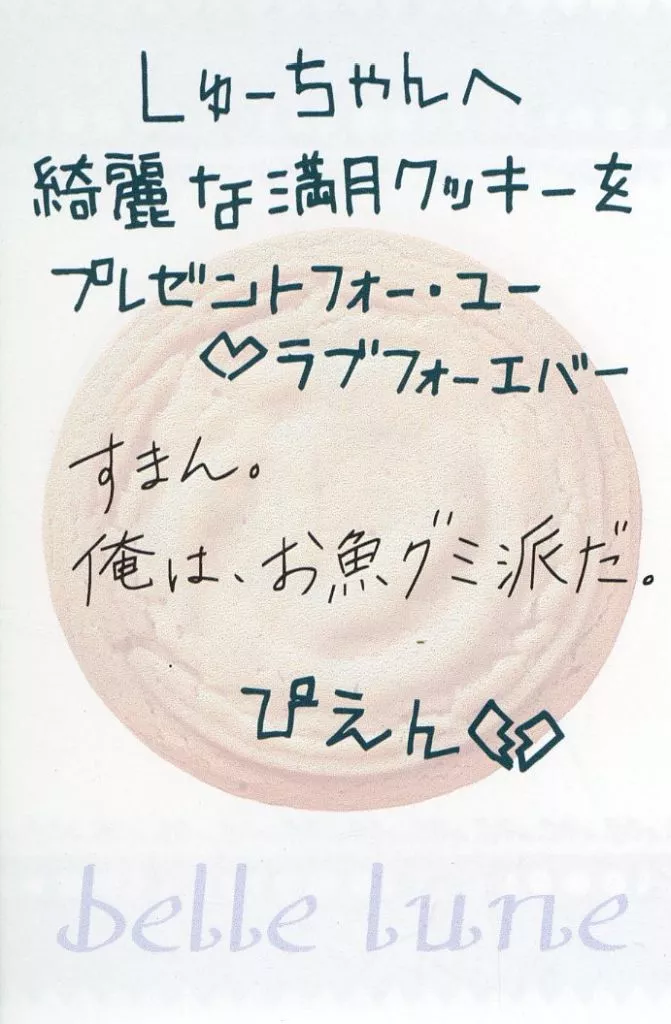 しゅーちゃんへ
綺麗な満月クッキーを
プレゼントフォー・ユー
♡ラブフォーエバー
すまん。
俺は、お魚グミ派だ。
ぴえん💔
belle lune